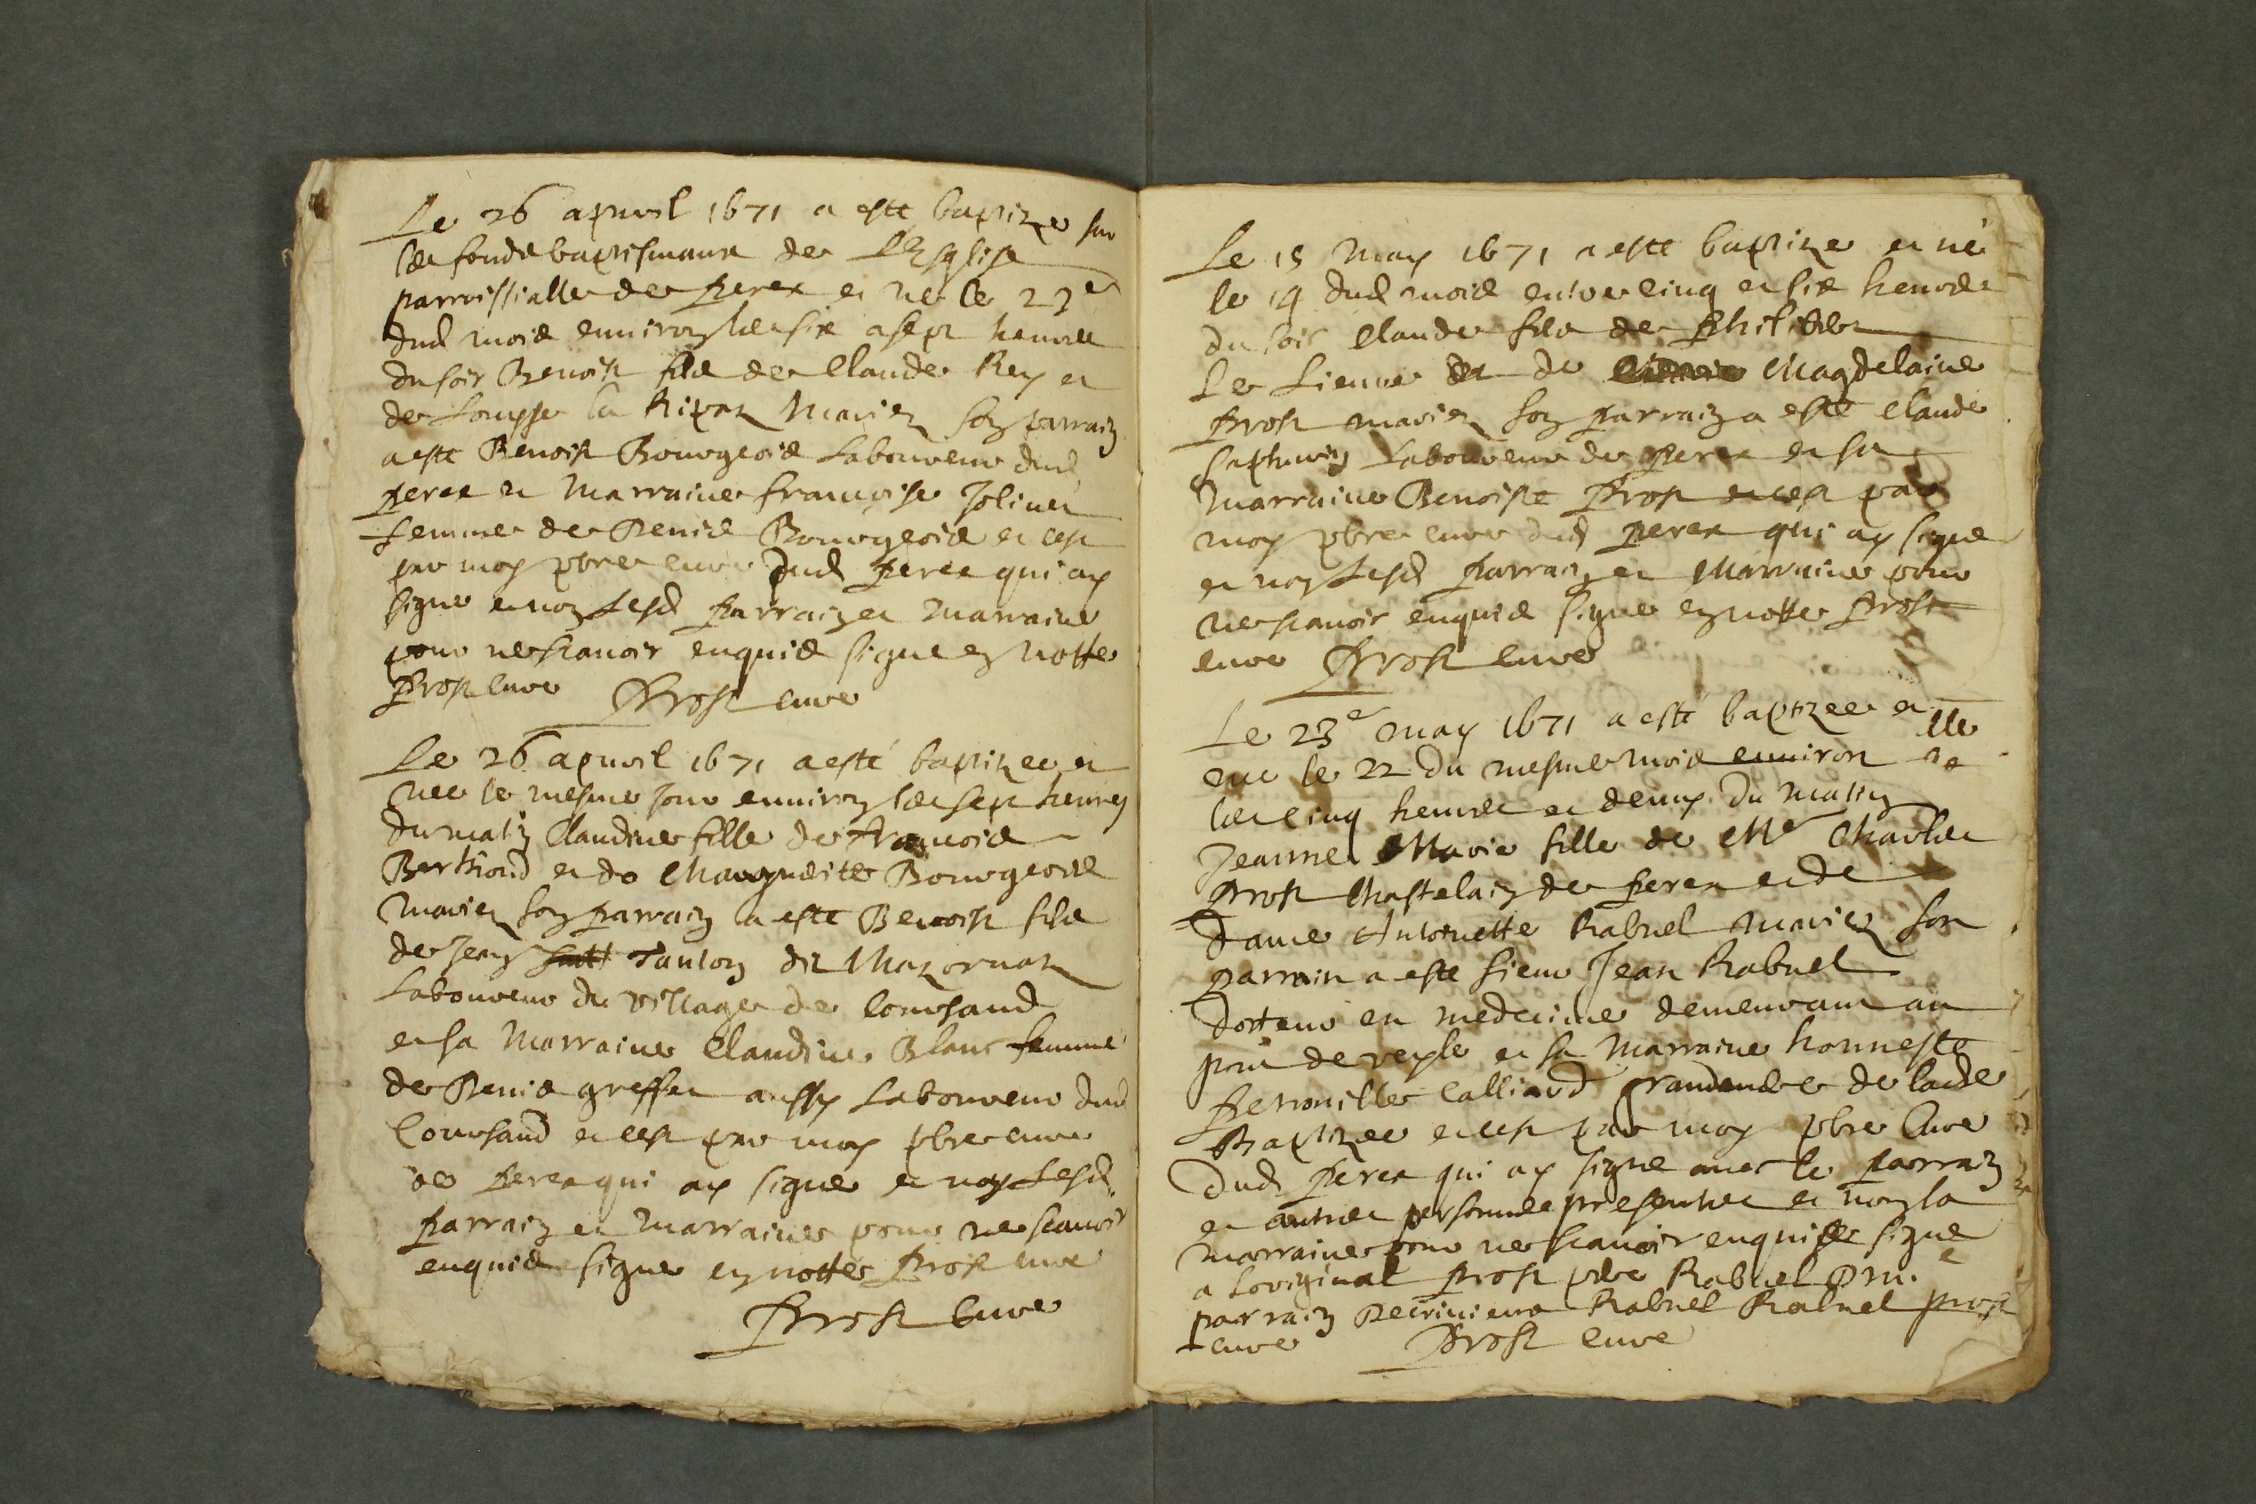 Le 26 apuril 1671 a esté baptize sur
les fonds baptismaux de L'Esglise
parroissialle de perex et né le 23e
dud mois enuiron les six a sept heures
du soir Benoist fils de Claude Rey et
de Louyse la Ripaz mariez son parrain
a esté Benoist Bourgeois Laboureur dud
perex et Marraine françoise Joliuet
femme de Denis Bourgeois et cest
par moy pbre curé dud perex qui ay
signe et non lesd parrain et marraine
pour ne scauoir enquis signe en notte
prost curé Prost curé
Le 26 apuril 1671 a esté baptizee et
nee le mesme jour enuiron les sept heures
du matin Claudine fille de françois
Berthoud et de Marguerite Bourgeois
mariez son parrain a esté Benoist fils
de Jean Tanton dit Mazornat
Laboureur du village de Coursand
et sa Marraine Claudine Blanc femme
de Denis greffet aussy Laboureur dud
Coursand et cest par moy pbre curé
de perex qui ay signe et non lesd
parrain et marraine pour ne scauoir
enquis signe en notte Prost curé
Prost Curé
Le 15 May 1671 a esté baptize et né
le 14 dud mois entre cinq et six heures
du soir Claude fils de philibert
Le Lieure et de Magdelaine
Prost mariez son parrain a esté Claude
Laboureur de perex et sa
Marraine Benoiste Prost et cest par
moy pbre curé dud perex qui ay signe
et non lesd parrain et Marraine pour
ne scauoir enquis signe en notte Prost
curé Prost curé
Le 23e may 1671 a esté baptizee et
nee le 22 du mesme mois enuiron
les cinq heures et demy du matin
Jeanne Marie fille de Me Charles
prost Chastelain de perex et de
Dame Antoinette Rabuel mariez son
parrain a esté sieur Jean Rabuel
docteur en medecine demeurant au
pont de veyle et sa Marraine honneste
perouille Calliard grandmere de lade
Baptizee et cest par moy pbre Curé
Dud perex qui ay signe auec le parrain
et autres personnes presentes et non la
marraine pour ne scauoir enquise signe
a Loriginal prost pbre Rabuel D M.
parrain Rabuel Rabuel prost
curé Prost curé